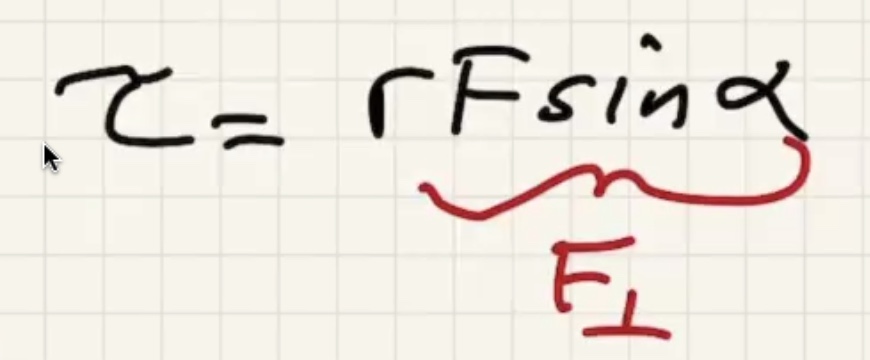 τ = rF sin α
F⊥